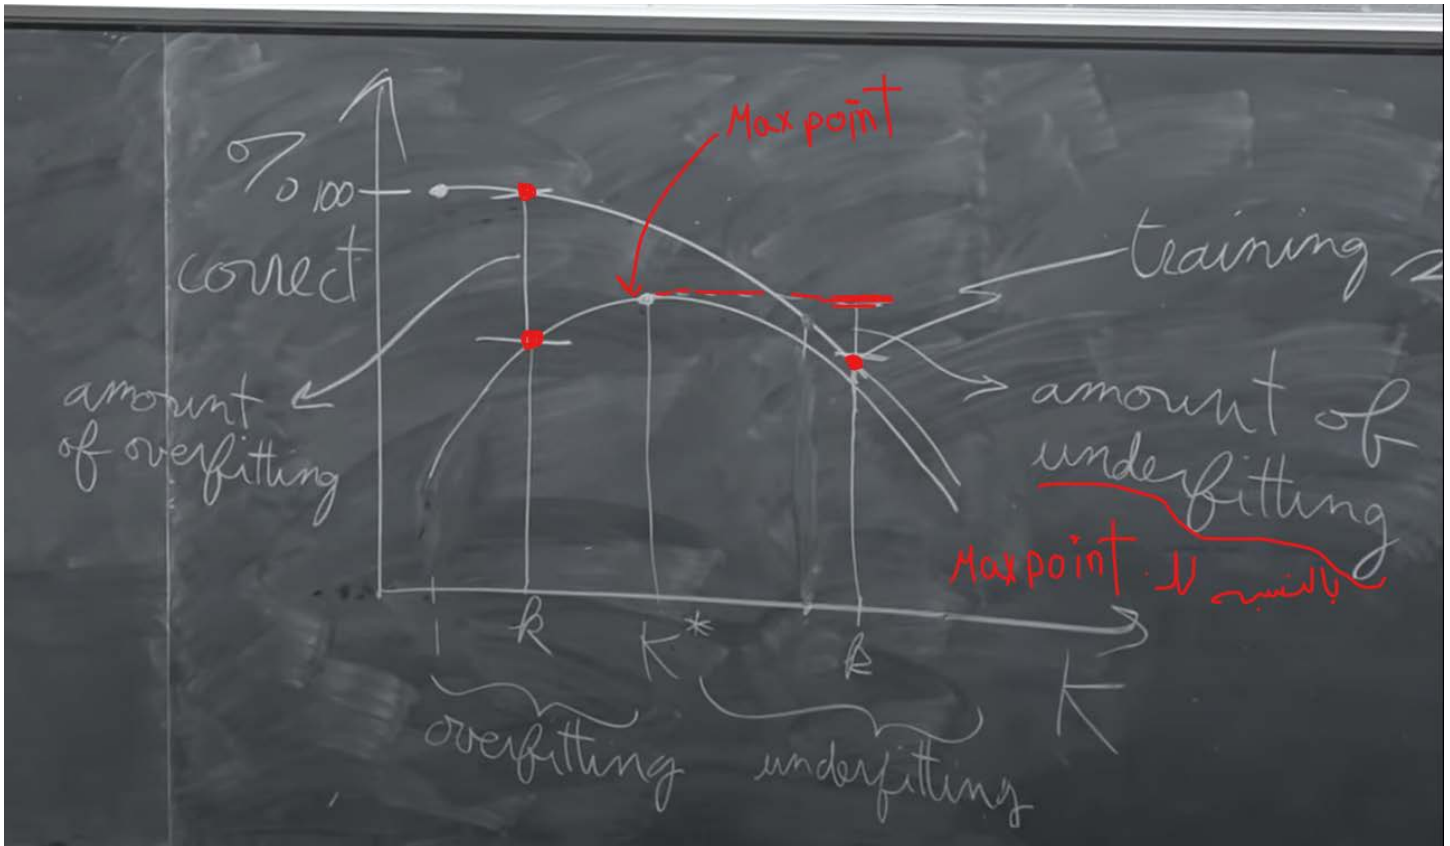 Max point
%
100
correct
training
amount
of overfitting
amount of
underfitting
Max point بالنسبه لل
1
k
K*
k
K
overfitting
underfitting